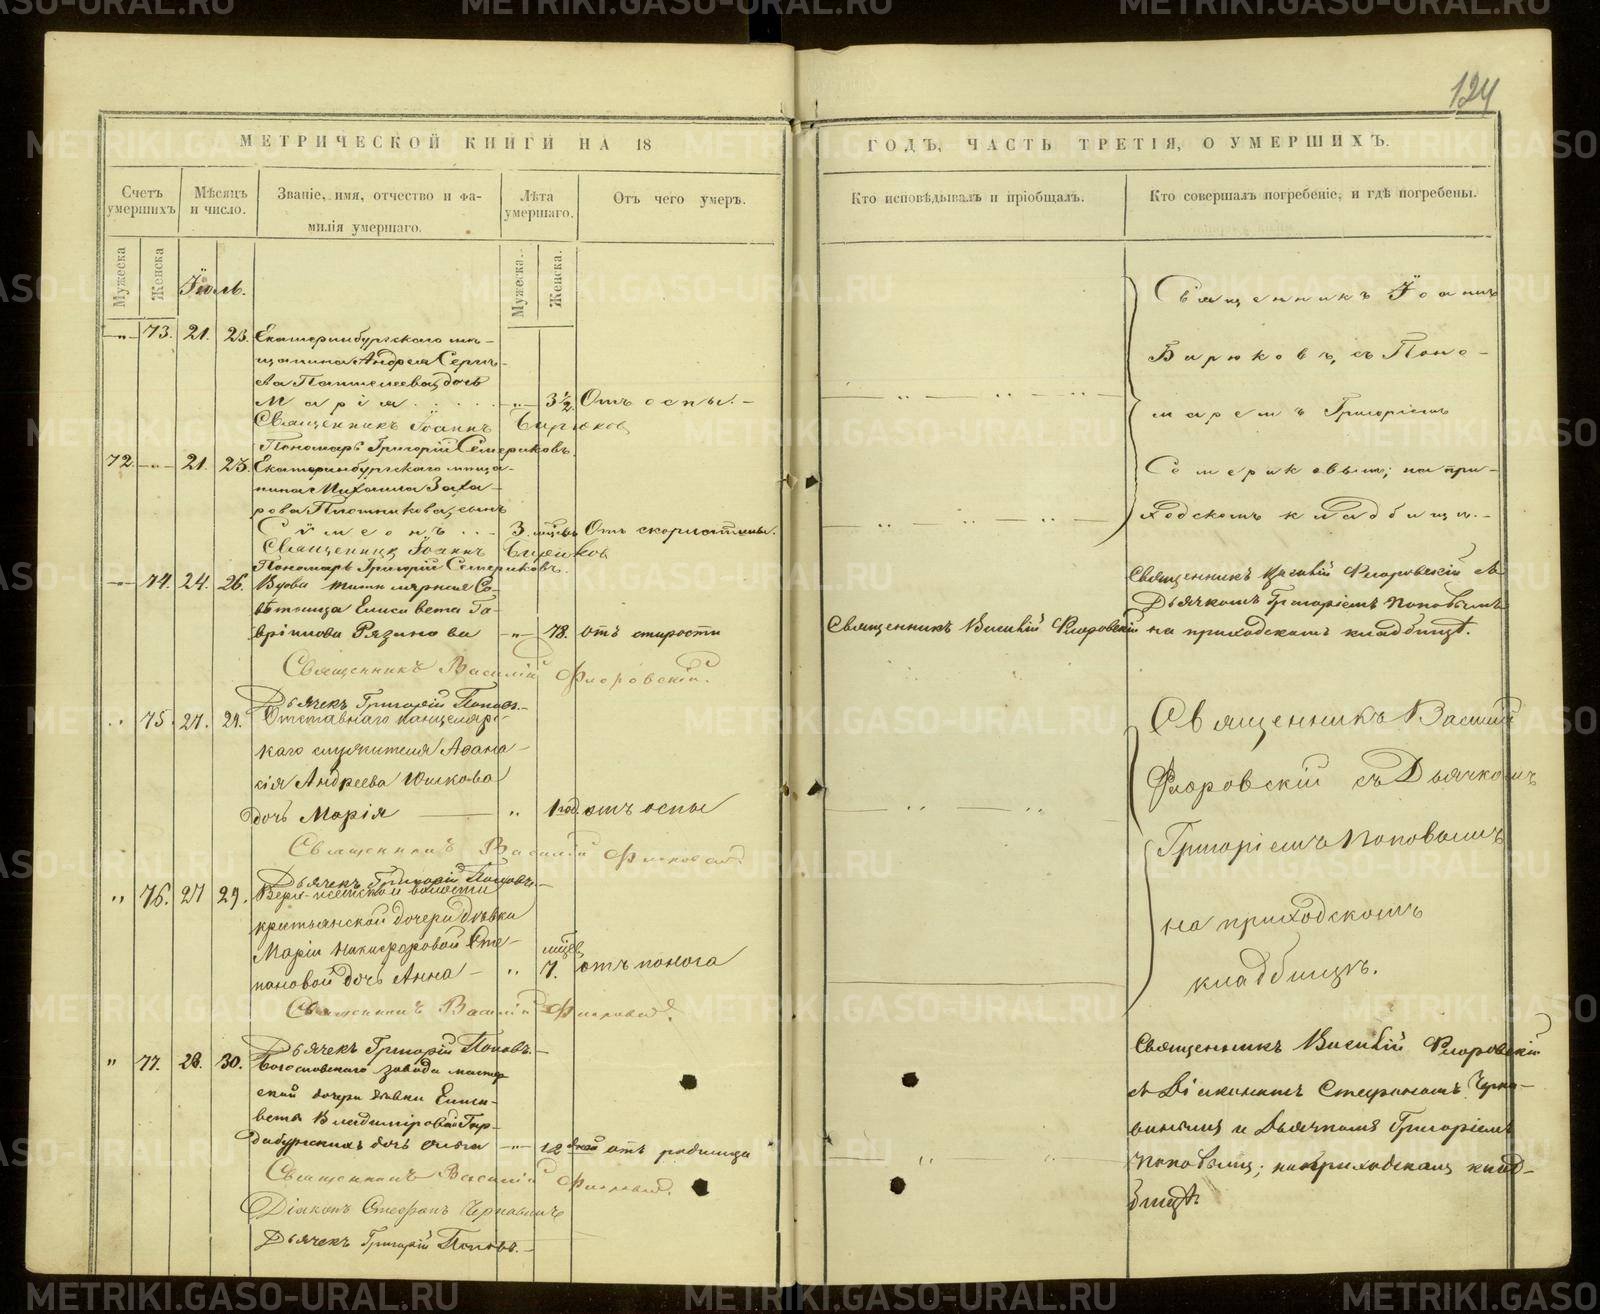 124
МЕТРИЧЕСКОЙ КНИГИ НА 18
ГОДЪ, ЧАСТЬ ТРЕТІЯ, О УМЕРШИХЪ.
Счетъ умершихъ
Мѣсяцъ и число.
Званіе, имя, отчество и фамилія умершаго.
Лѣта умершаго.
Отъ чего умеръ.
Кто исповѣдывалъ и пріобщалъ.
Кто совершалъ погребеніе, и гдѣ погребены.
Мужеска
Женска
Мужеска.
Женска.
Іюль.
73. 21. 23. Екатеринбургскаго мѣ-
щанина Андрея Серги-
ева Пантелеева, дочь
Марія 3½ Отъ оспы.
Священникъ Іоаннъ Бирюковъ
Пономарь Григорій Семериковъ.
Священникъ Іоаннъ
Бирюковъ, съ Поно-
маремъ Григоріемъ
Семериковымъ; на при-
ходскомъ кладбищѣ.
72. 21. 23. Екатеринбургскаго мѣща-
нина Михаила Заха-
рова Плотникова, сынъ
Сѵмеонъ 3. Отъ скарлатины.
Священникъ Іоаннъ Бирюковъ
Пономарь Григорій Семериковъ.
74. 24. 26. Вдова титулярная Со-
вѣтница Елисавета Га-
вріилова Рязанова 78. отъ старости
Священникъ Василій Флоровскій
Священникъ Василій Флоровскій съ
Дьячкомъ Григоріемъ Поповымъ
на приходскомъ кладбищѣ.
Священникъ Василій Флоровскій.
Дьячекъ Григорій Поповъ.
75. 27. 29. Отставнаго канцеляр-
скаго служителя Афана-
сія Андреева Юшкова
дочь Марія 1 год. отъ оспы
Священникъ Василій Флоровскій
Дьячекъ Григорій Поповъ.
Священникъ Василій
Флоровскій съ Дьячкомъ
Григоріемъ Поповымъ
на приходскомъ
кладбищѣ.
76. 27 29. Верх-Исетской волости
крестьянской дочери дѣвки
Маріи Никифоровой Сте-
пановой дочь Анна 7. мѣсяц. отъ поноса
Священникъ Василій Флоровскій
Дьячекъ Григорій Поповъ.
77. 28. 30. Богословскаго завода мастер-
ской дочери дѣвки Елиса-
веты Владиміровой
дочь Ольга 12 дней отъ родимца
Священникъ Василій Флоровскій.
Діаконъ Стефанъ
Дьячекъ Григорій Поповъ.
Священникъ Василій Флоровскій
съ Діакономъ Стефаномъ
и Дьячкомъ Григоріемъ
Поповымъ; на приходскомъ клад-
бищѣ.
METRIKI.GASO-URAL.RU